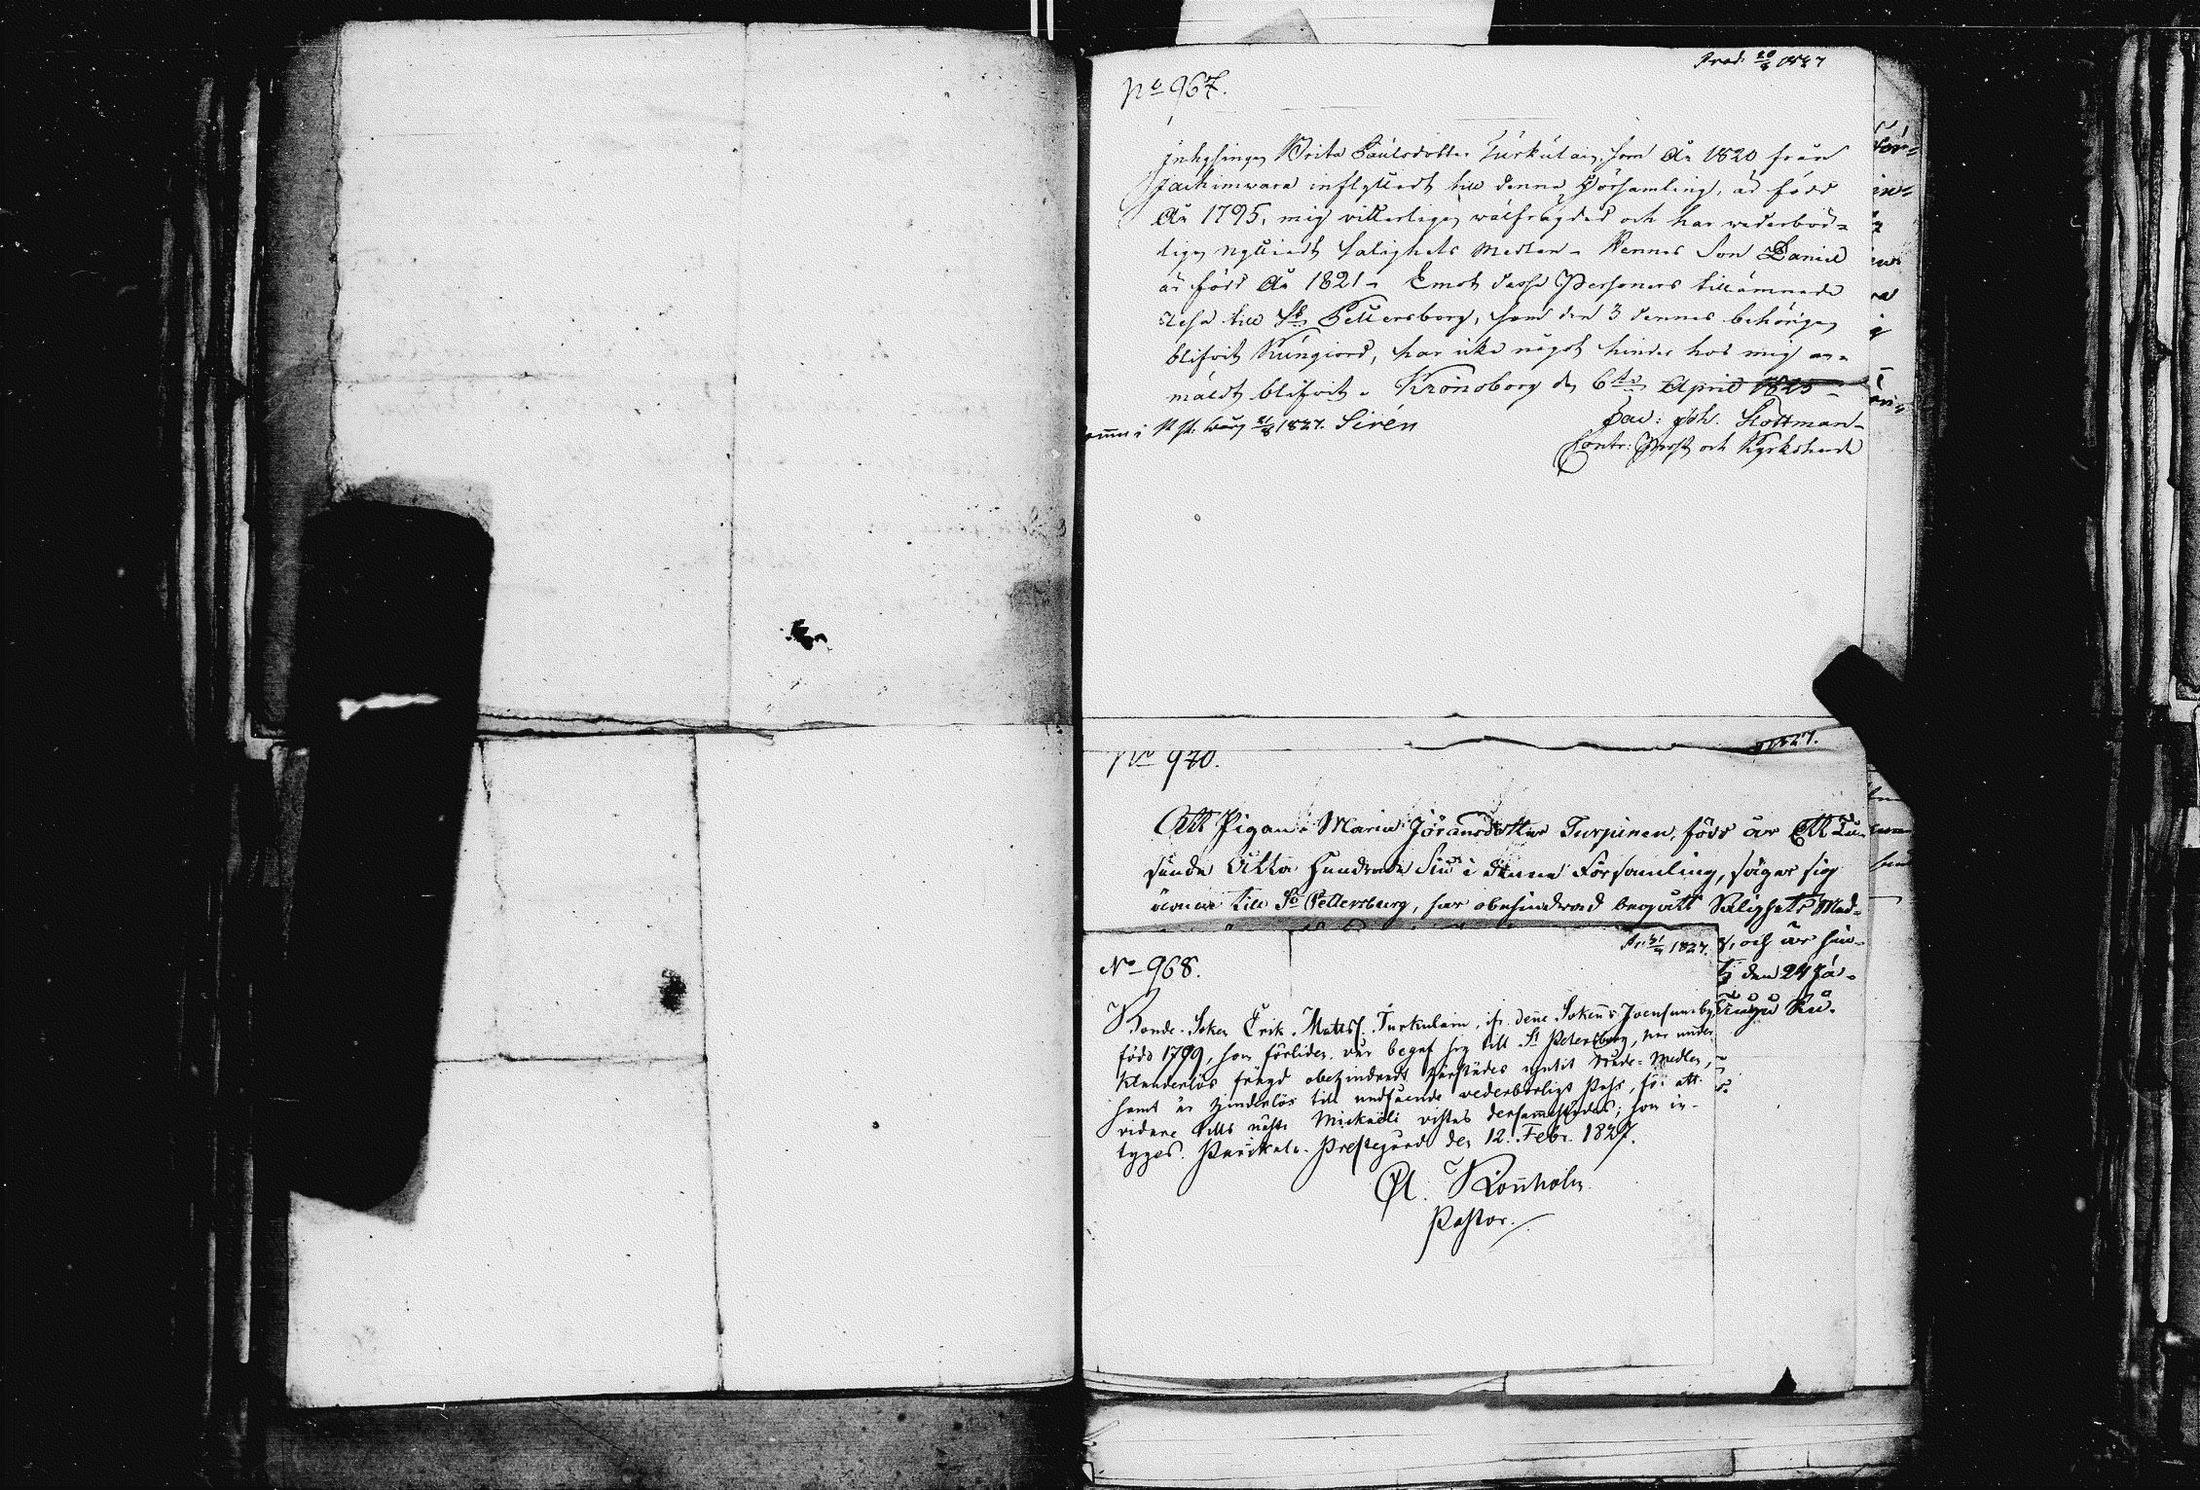 Prod. 20/8 1827
No 967.
Inhysingen Brita Paulsdotter Turkulain, som År 1820 från
Jackimvara inflyttadt till denna Församling, är född
År 1795, mig vitterligen välfrägdad och har vederbör=
ligen nyttiadt Salighets Medlen - Hennes Son Daniel
är född År 1821 - Emot dessa Personers tillämnade
resa till St Pettersborg, som den 3 dennes behörigen
blifvit kungiord, har icke något hinder hos mig an-
mäldt blifvit. Kronoborg den 6te April 1825 -
Jac: Joh. Hottman
Contr: Prost och Kyrkoherde
i St. P.burg 21/8 1827. Sirén
1827.
No 970.
Att Pigan Maria Jöransdotter Turpinen, född år Ett Tu-
sende Åtta Hundrade Siu i denna Församling, säger sig
till St Pettersburg, har obehindrad begått Salighets Med-
och är hin-
den 24 Ja-
Ar. 21/4 1827.
No 968.
Bonde-Sonen Erik Mattss. Turkulain, ifr. denne Sokens Joensuu by
född 1799, som förliden vår begaf sig till St Petersburg, har under
klanderlös frägd obehindradt härstädes niutit Nåde-Medlen,
samt är hinderlös till undfående vederbörligt Pass, för att
vidare tills nästa Mickaëli vistas dersammastädes; som in-
tygas. Parikala Prestegård den 12. Febr. 1827.
Kiönholm
Pastor.